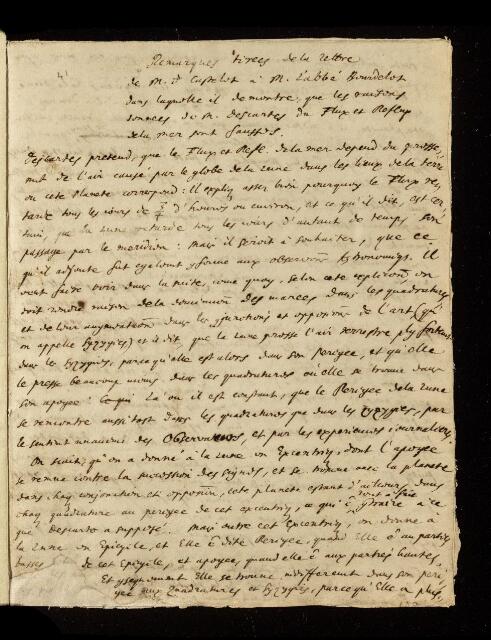 Remarques tirées de la lettre
de M. P. Castelet à M. L'abbé Bourdelot
dans laquelle il demontre, que les raisons
donnees de M. descartes du Flux et Reflux
de la mer sont fausses.
descartes pretend, que le Flux et Refl. de la mer depend du
de l'air causé par le globe de la Lune dans les lieux de la terre
ou cete Planete correspond: Il expliq assez bien pourquoy le Flux re
tarde tous les iours de d'heures ou environ, et ce qu'il dit, est
que la Lune retarde tous les iours d'autant de temps, son
passage par le meridien: mais il seroit à souhaiter, que ce
qu'il adjoute fut egalement conforme aux observaons Astronomiqs. Il
veut faire voir dans la suite, come quoy, selon cete explicaon, on
doit rendre raison de la diminution des marees dans les quadratures
et de leur augmentaon dans les conjonctions et oppositions de l'astre (qu'
on appelle syzygies) et il dit, que la Lune presse l'air terrestre plus fortemt
dans les syzygies, parce qu'elle est alors dans son Perigee, et qu'elle
le presse beaucoup moins dans les quadratures où elle se trouve dans
son apogee: Là où il est constant, que le Perigee de la Lune
se rencontre aussitost dans les quadratures que dans les syzygies, par
le sentiment unanime des Observateurs, et par les experiences iournalieres.
On sçait, qu'on a donné à la Lune un Excentriq, dont l'apogee
se remue contre la succession des signes, et se trouve avec la planete
dans chaq conjonction et opposition, cete planete estant d'ailleurs dans
chaq quadrature au perigee de cet excentriq, ce qui e tout à fait contraire à ce
que descartes a supposé. Mais outre cet Excentriq, on donne à
la Lune un Epicycle, et Elle e dite Perigee, quand Elle e au parties
basses de cet Epicycle, et apogee, quand elle e aux parties hautes.
Et cependant Elle se trouve indifferemt dans son peri
gee aux Quadratures et syzygies, parce qu'Elle a plus